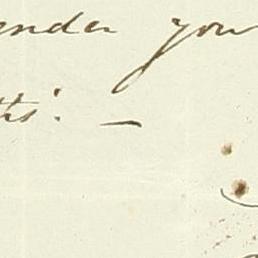 ender you
ths. —